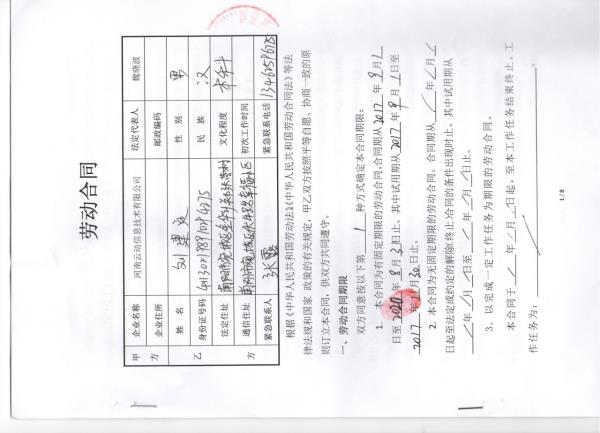 劳动合同
甲方 企业名称 河南云动信息技术有限公司 法定代表人 魏晓波
企业住所 邮政编码
乙方 姓名 性别 男
身份证号码 民族 汉
法定住址 文化程度 本科
通信住址 初次工作时间
紧急联系人 张露 紧急联系电话
根据《中华人民共和国劳动法》《中华人民共和国劳动合同法》等法
律法规和国家 政策的有关规定，甲乙双方按照平等自愿、协商一致的原
则订立本合同，供双方共同遵守。
一、劳动合同期限
双方同意按以下第 1 种方式确定本合同期限：
1. 本合同为有固定期限的劳动合同。合同期从 2017 年 9 月 1
日至 2020 年 8 月 31 日止。其中试用期从 2017 年 9 月 1 日至
2017 年 11 月 30 日止。
2. 本合同为无固定期限的劳动合同。合同期从 / 年 / 月 /
日起至法定或约定的解除(终止)合同的条件出现时止。其中试用期从
/ 年 / 月 / 日至 / 年 / 月 / 日止。
3. 以完成一定工作任务为期限的劳动合同。
本合同于 / 年 / 月 / 日起，至本工作任务结束终止。工
作任务为：
1/8